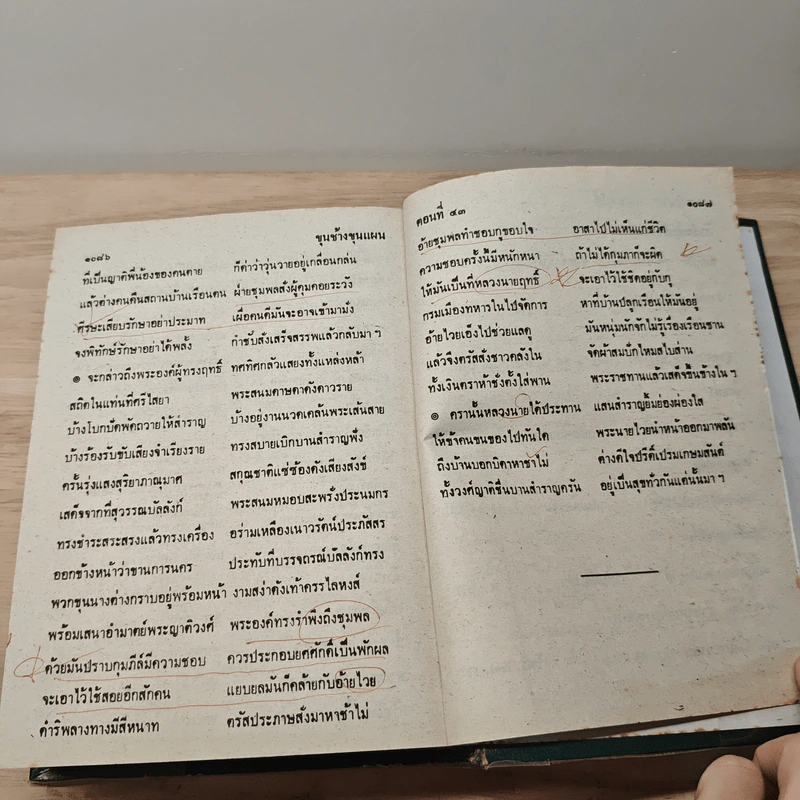 ๑๐๘๖ ขุนช้างขุนแผน
ที่เป็นญาติพี่น้องของคนตาย ก็ด่าว่าวุ่นวายอยู่เกลื่อนกล่น
แล้วต่างคนคืนสถานบ้านเรือนตน ฝ่ายชุมพลสั่งผู้คุมคอยระวัง
ศีรษะเสียบรักษาอย่าประมาท เผื่อคนดีมันจะอาจเข้ามามั่ง
จงพิทักษ์รักษาอย่าได้พลั้ง กำชับสั่งเสร็จสรรพแล้วกลับมา ฯ
๏ จะกล่าวถึงพระองค์ผู้ทรงฤทธิ์ ทศทิศกลัวแสยงทั้งแหล่งหล้า
สถิตในแท่นที่ศรีไสยา พระสนมดาษดาดังดาวราย
บ้างโบกปัดพัดถวายให้สำราญ บ้างอยู่งานนวดเคล้นพระเส้นสาย
บ้างร้องรับขับเสียงจำเรียงราย ทรงสบายเบิกบานสำราญฟัง
ครั้นรุ่งแสงสุริยาภาณุมาศ สกุณชาติแซ่ซ้องดังเสียงสังข์
เสด็จจากที่สุวรรณบัลลังก์ พระสนมหมอบสะพรั่งประนมกร
ทรงชำระสระสรงแล้วทรงเครื่อง อร่ามเหลืองเนาวรัตน์ประภัสสร
ออกข้างหน้าว่าขานการนคร ประทับที่บรรจถรณ์บัลลังก์ทรง
พวกขุนนางต่างกราบอยู่พร้อมหน้า งามสง่าดังเท้าครรไลหงส์
พร้อมเสนาอำมาตย์พระญาติวงศ์ พระองค์ทรงรำพึงถึงชุมพล
ด้วยมันปราบกุมภีล์มีความชอบ ควรประกอบยศศักดิ์เป็นพักผล
จะเอาไว้ใช้สอยอีกสักคน แยบยลมันก็คล้ายกับอ้ายไวย
ดำริพลางทางมีสีหนาท ตรัสประภาษสั่งมาหาช้าไม่
ตอนที่ ๔๓ ๑๐๘๗
อ้ายชุมพลทำชอบกูขอบใจ อาสาไปไม่เห็นแก่ชีวิต
ความชอบครั้งนี้มีหนักหนา ถ้าไม่ได้กุมภาก็จะผิด
ให้มันเป็นที่หลวงนายฤทธิ์ จะเอาไว้ใช้ชิดอยู่กับกู
กรมเมืองทหารในไปจัดการ หาที่บ้านปลูกเรือนให้มันอยู่
อ้ายไวยเอ็งไปช่วยแลดู มันหนุ่มนักจักไม่รู้เรื่องเรือนชาน
แล้วจึงตรัสสั่งชาวคลังใน จัดผ้าสมปักไหมสไบส่าน
ทั้งเงินตราห้าชั่งตั้งใส่พาน พระราชทานแล้วเสด็จขึ้นข้างใน ฯ
๏ ครานั้นหลวงนายได้ประทาน แสนสำราญยิ้มย่องผ่องใส
ให้ข้าคนขนของไปทันใด พระนายไวยนำหน้าออกมาพลัน
ถึงบ้านบอกบิดาหาช้าไม่ ต่างดีใจปรีดิ์เปรมเกษมสันต์
ทั้งวงศ์ญาติชื่นบานสำราญครัน อยู่เป็นสุขทั่วกันแต่นั้นมา ฯ